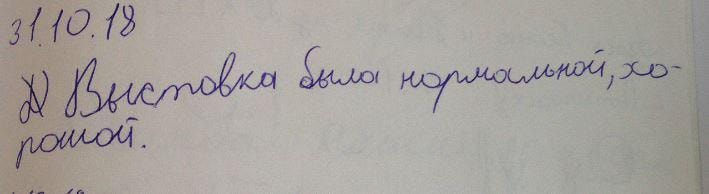 31.10.18
Выстовка была нормальной, хо-
рошой.